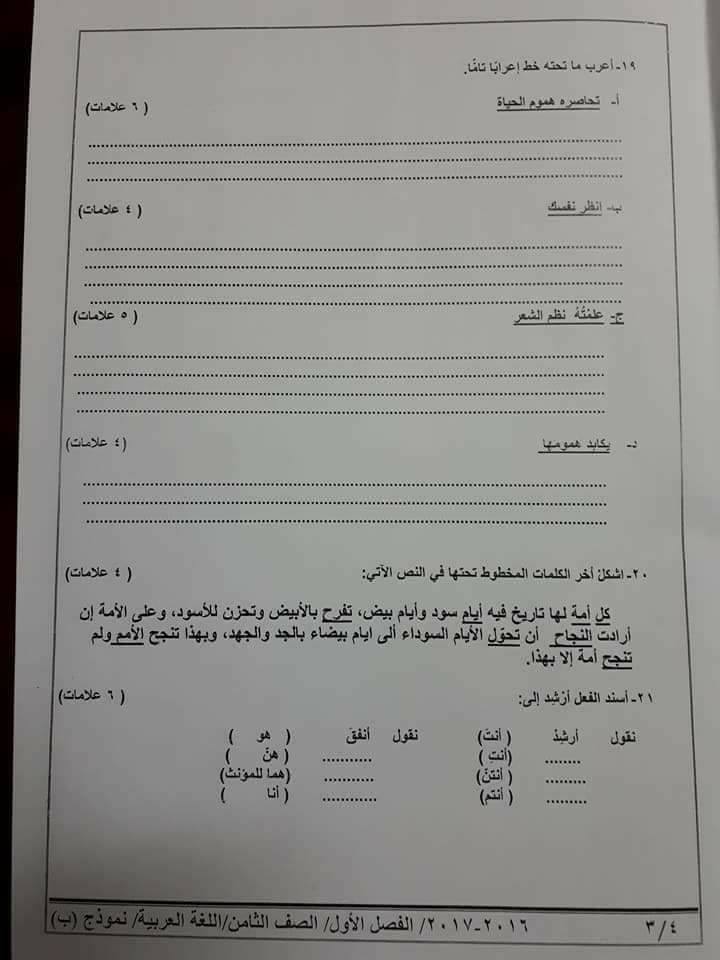 ١٩- أعرب ما تحته خط إعرابًا تامًّا.
أ- تحاصره هموم الحياة ( ٦ علامات)
ب- انظر نفسك ( ٤ علامات)
ج- علمْتُهُ نظم الشعر ( ٥ علامات)
د- يكابد همومها (٤ علامات)
٢٠- اشكلْ أخر الكلمات المخطوط تحتها في النص الآتي: ( ٤ علامات)
كل أمة لها تاريخ فيه أيام سود وأيام بيض، تفرح بالأبيض وتحزن للأسود، وعلى الأمة إن
أرادت النجاح أن تحوّل الأيام السوداء ألى ايام بيضاء بالجد والجهد، وبهذا تنجح الأمم ولم
تنجح أمة إلا بهذا.
٢١- أسند الفعل أرْشِد إلى: ( ٦ علامات)
نقول أرشِدْ ( أنتَ) نقول أنفقَ ( هو )
........ (أنتِ ) ........... ( هنّ )
......... ( أنتنّ) ........... (هما للمؤنث)
......... ( أنتم) ............ ( أنا )
٣/٤ ٢٠١٦-٢٠١٧/ الفصل الأول/ الصف الثامن/اللغة العربية/ نموذج (ب)